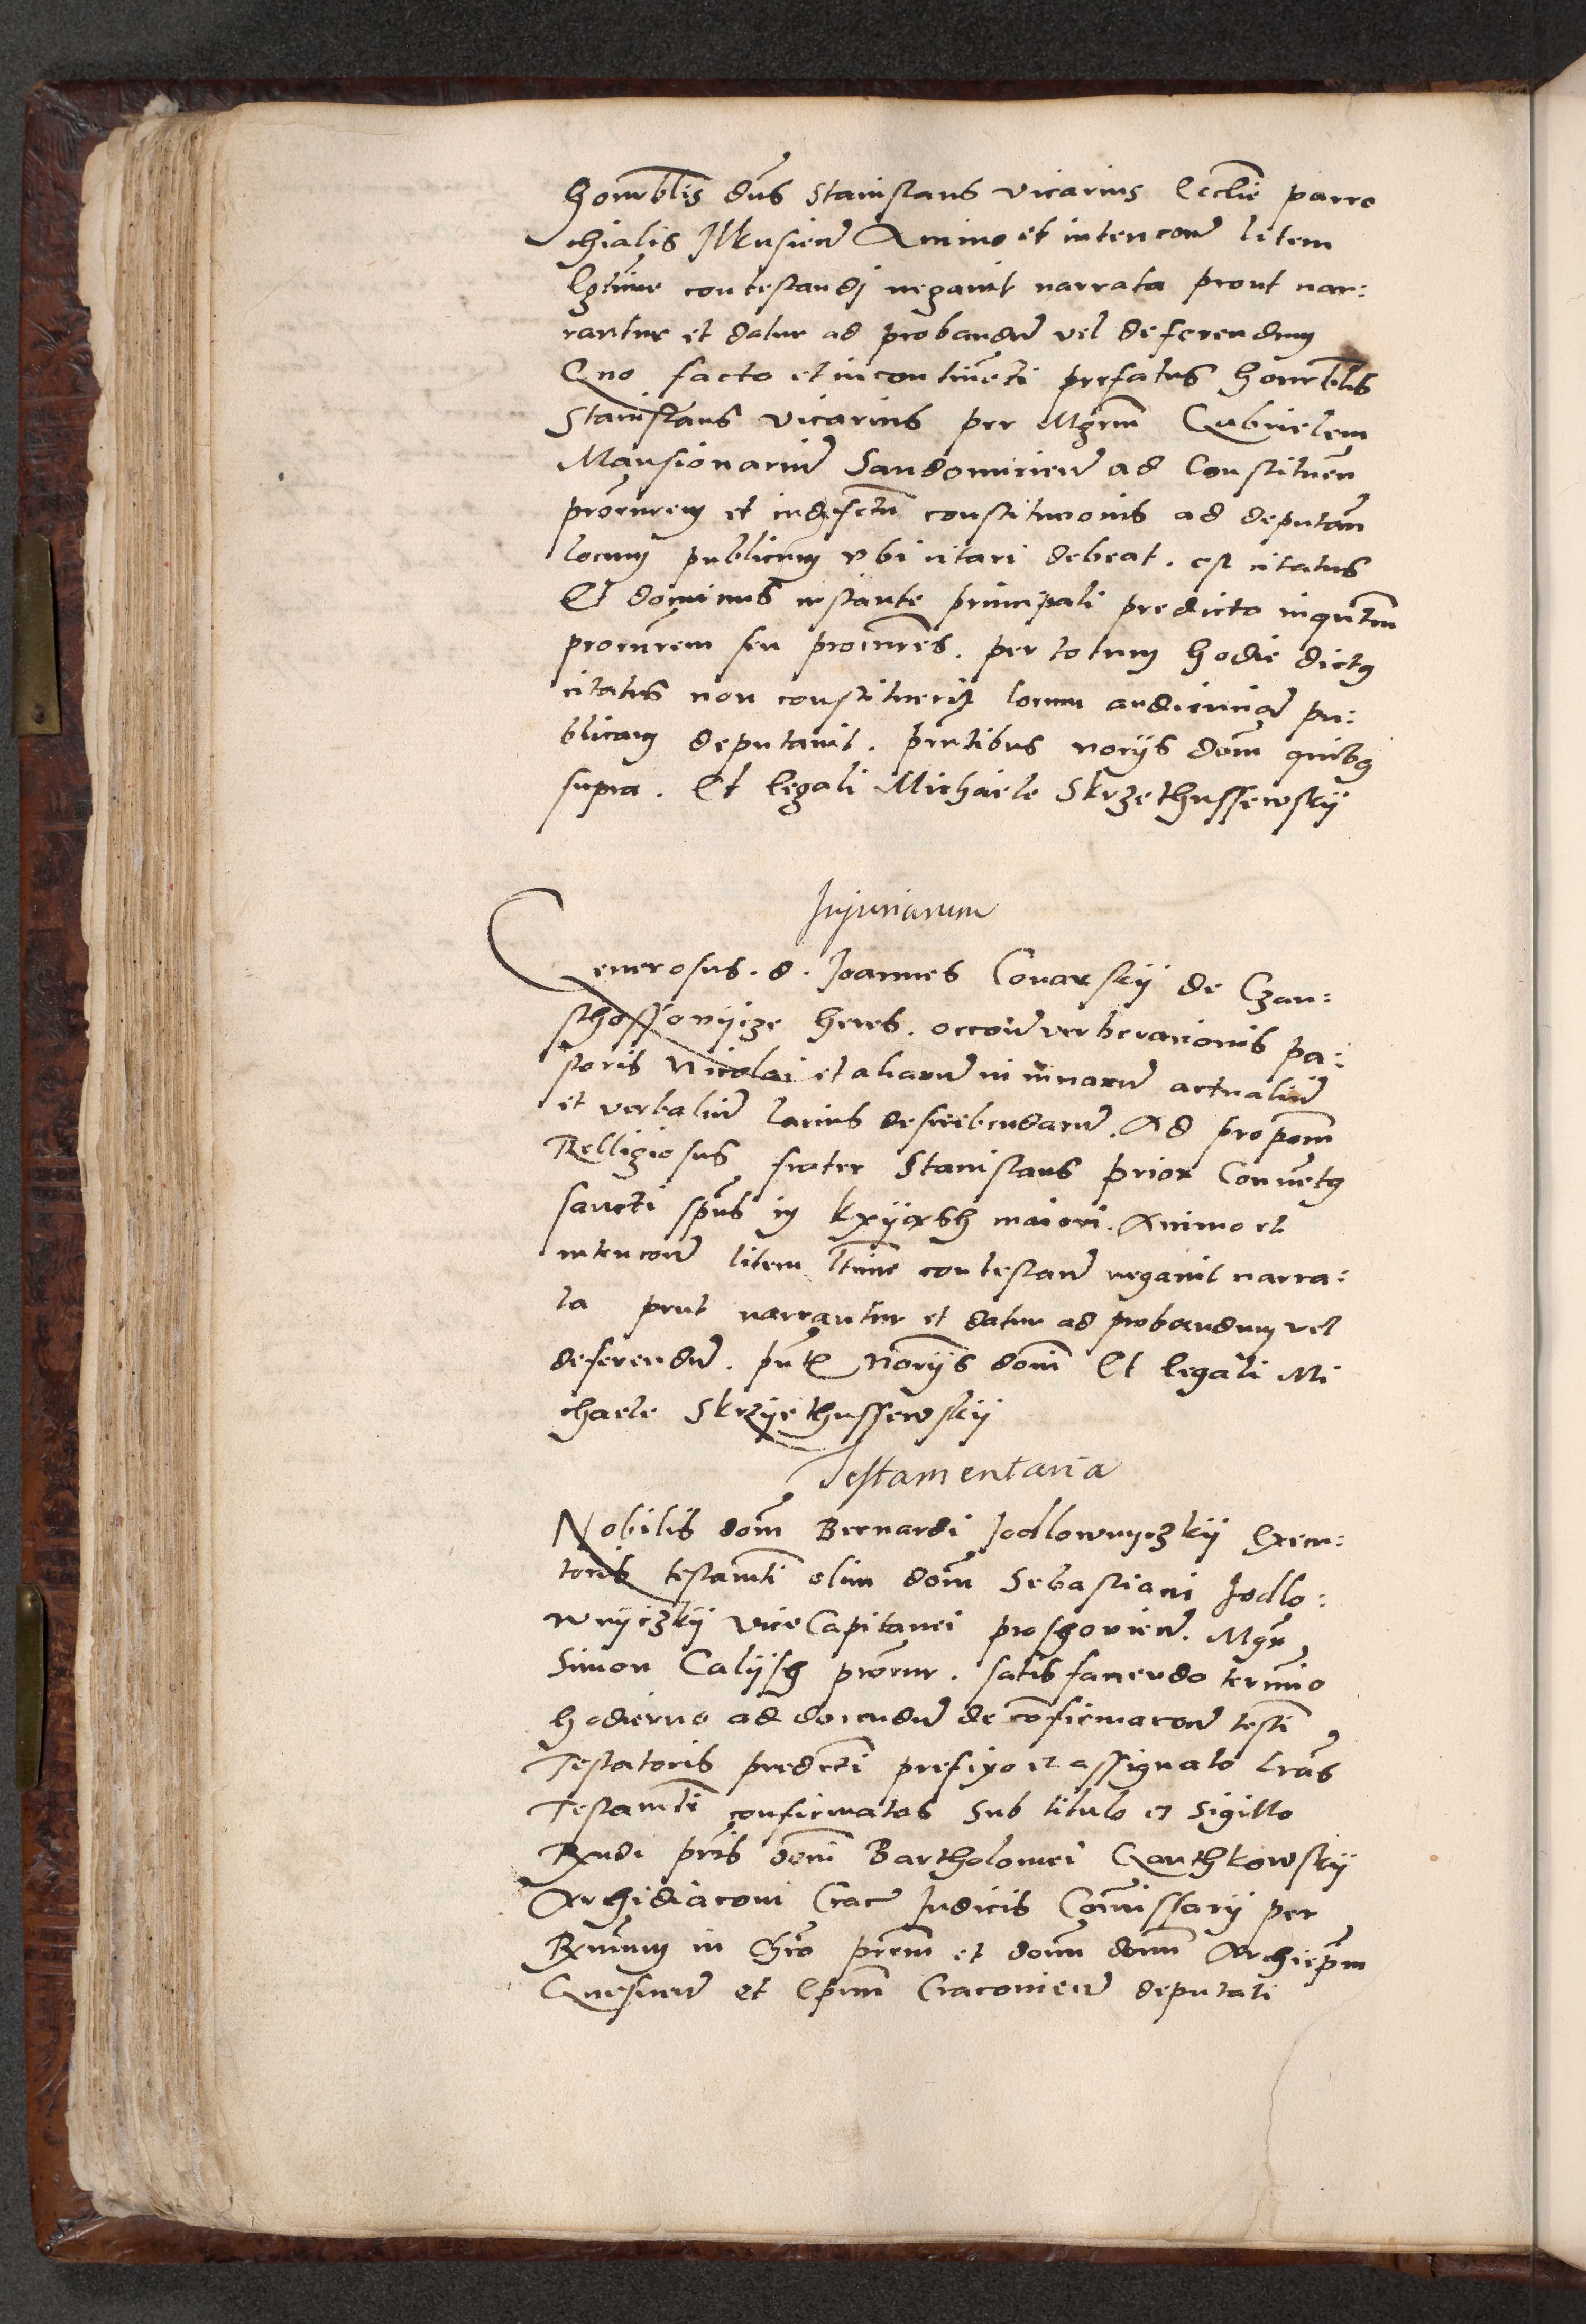 honorablis dns Stanislaus vicarius Ecclie parro
chialis Ilkusien Animo et intencone letem
lgtime contestandj negavit narrata prout nar:
rantur et datur ad probandu vel deferendum
Quo facto et incontinenti prefatus honorablis
Stanislaus vicarius per Mgrum Gabrielem
Mansionariu Sandomirien ad Constituen
procurem et in defectu constitucionis ad deputan
locum publicum vbi citari debeat . est citatus
Et dominus instante principali predicto inquntm
procurem seu procures . per totum hodie dictus
citatus non constituerit locum audiencia pu:
blicum deputavit . pntibus noriis dom quibus
supra . Et legali Michaele Skrzethussewskij
Injuriarum
Generosus . d . Joannes Conarskij de Czan:
sthossovijcze heres . occone verberacionis pa:
storis Nicolai et aliaru iniuriaru actualiu
et verbaliu lacius describendaru . Ad propom
Relligiosus frater Stanislaus prior Conuentus
sancti spus in Kxijaxsh maiori . Animo et
intencone litem ltime contestan negavit narra:
ta prut narrantur et datur ad probandum vel
deferendu . pnt noriis dom Et legali Mi
chaele Skrzijethussewskij
Testamentaria
Nobilis dom Bernardi Jodlownyczkij Execu:
toris testamti olim dom Sebastiani Jodlo:
wnijczkij vice Capitanei proshovien . Mgr
Simon Calijsh procur . satisfaciendo termino
hodierno ad docendu de confirmacone testi
Testatoris predicti prefixo et assignato lras
Testamti confirmatas sub titulo et sigillo
Rxndi pris domi Bartholomei Ganthkowskij
Archidiaconi Crac Judicis Comissarij per
Rxmum in Chro prem et dom domi Archiepm
Gnesnen et Epum Cracovien deputati